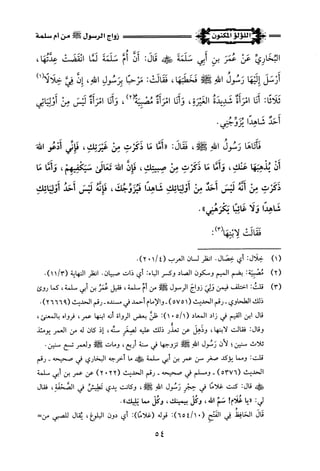 اللؤلؤ المكنون
زواج الرسول ﷺ من أم سلمة
البُخَارِيُّ عَنْ عُمَرَ بنِ أَبِي سَلَمَةَ ﷺ قَالَ: أَنَّ أُمَّ سَلَمَةَ لَمَّا انْقَضَتْ عِدَّتُهَا،
أَرْسَلَ إِلَيْهَا رَسُولُ اللهِ ﷺ فَخَطَبَهَا، فَقَالَتْ: مَرْحَبًا بِرَسُولِ اللهِ، إِنَّ فِيَّ خِلَالًا(١)
ثَلَاثًا: أَنَا امْرَأَةٌ شَدِيدَةُ الغَيْرَةِ، وَأَنَا امْرَأَةٌ مُصْبِيَةٌ(٢)، وَأَنَا امْرَأَةٌ لَيْسَ مِنْ أَوْلِيَائِي
أَحَدٌ شَاهِدًا يُزَوِّجُنِي.
فَأَتَاهَا رَسُولُ اللهِ ﷺ، فَقَالَ: «أَمَّا مَا ذَكَرْتِ مِنْ غَيْرَتِكِ، فَإِنِّي أَدْعُو اللهَ
أَنْ يُذْهِبَهَا عَنْكِ، وَأَمَّا مَا ذَكَرْتِ مِنْ صِبْيَتِكِ، فَإِنَّ اللهَ تَعَالَى سَيَكْفِيهِمْ، وَأَمَّا مَا
ذَكَرْتِ مِنْ أَنَّهُ لَيْسَ أَحَدٌ مِنْ أَوْلِيَائِكِ شَاهِدًا فَيُزَوِّجُكِ، فَإِنَّهُ لَيْسَ أَحَدٌ أَوْلِيَائِكِ
شَاهِدًا وَلَا غَائِبًا يَكْرَهُنِي».
فَقَالَتْ لِابْنِهَا(٣):
(١) خِلَال: أي خِصَال. انظر لسان العرب (٢٠١/٤).
(٢) مُصْبِيَة: بضم الميم وسكون الصاد وكسر الباء: أي ذات صبيان. انظر النهاية (١١/٣).
(٣) قلتُ: اختلف فيمن وَلِيَ زواج الرسول ﷺ من أم سلمة، فقيل عُمَرُ بن أبي سلمة، كما روى
ذلك الطحاوي - رقم الحديث (٥٧٥١) - والإمام أحمد في مسنده - رقم الحديث (٢٦٦٦٩)
قال ابن القيم في زاد المعاد (١٠٥/١): ظنَّ بعض الرواة أنه ابنها عمر، فرواه بالمعنى،
وقال: فقالت لابنها، وذَهِلَ عن تعذُّر ذلك عليه لصِغَرِ سنِّه، إذ كان له من العمر يومئذ
ثلاث سنين؛ لأن رسول الله ﷺ تزوجها في سنة أربع، ومات ﷺ ولعمر تسع سنين.
قلت: ومما يؤكد صغر سن عمر بن أبي سلمة ﷺ ما أخرجه البخاري في صحيحه - رقم
الحديث (٥٣٧٦) - ومسلم في صحيحه - رقم الحديث (٢٠٢٢) عن عمر بن أبي سلمة
ﷺ قال: كنت غلامًا في حِجْرِ رسول الله ﷺ، وكانت يدي تَطِيشُ في الصَّحْفَةِ، فقال
لي: «يا غُلَامُ! سَمِّ اللهَ، وكُلْ بيمينك، وكُلْ مما يَلِيكَ».
قال الحَافِظُ في الفَتْحِ (٦٥٤/١٠): قوله (غلامًا): أي دون البلوغ، يُقال للصبي من=
٥٤